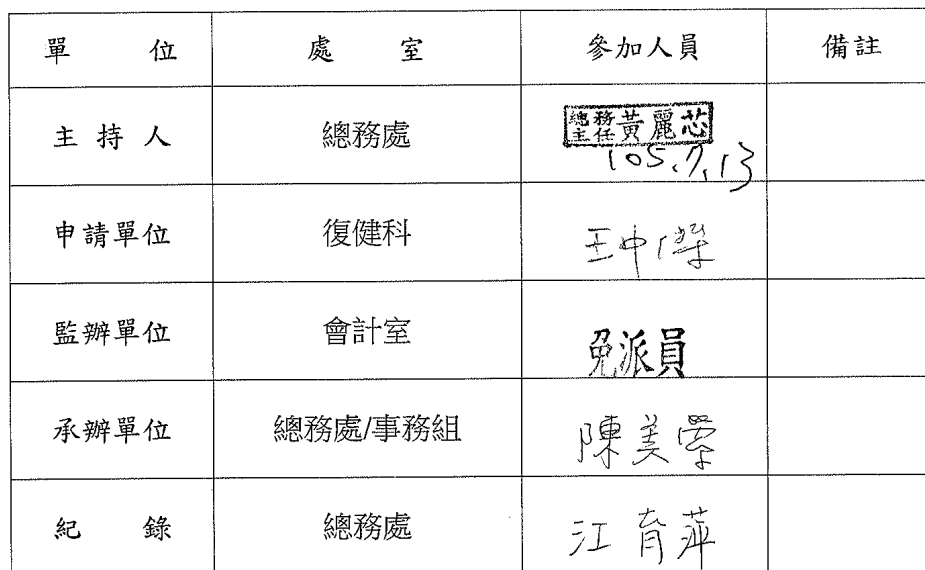 單 位 處 室 參加人員 備註
主 持 人 總務處 總務主任 黃麗芯
105.7.13
申請單位 復健科 王中
監辦單位 會計室 免派員
承辦單位 總務處/事務組 陳美
紀 錄 總務處 江育萍